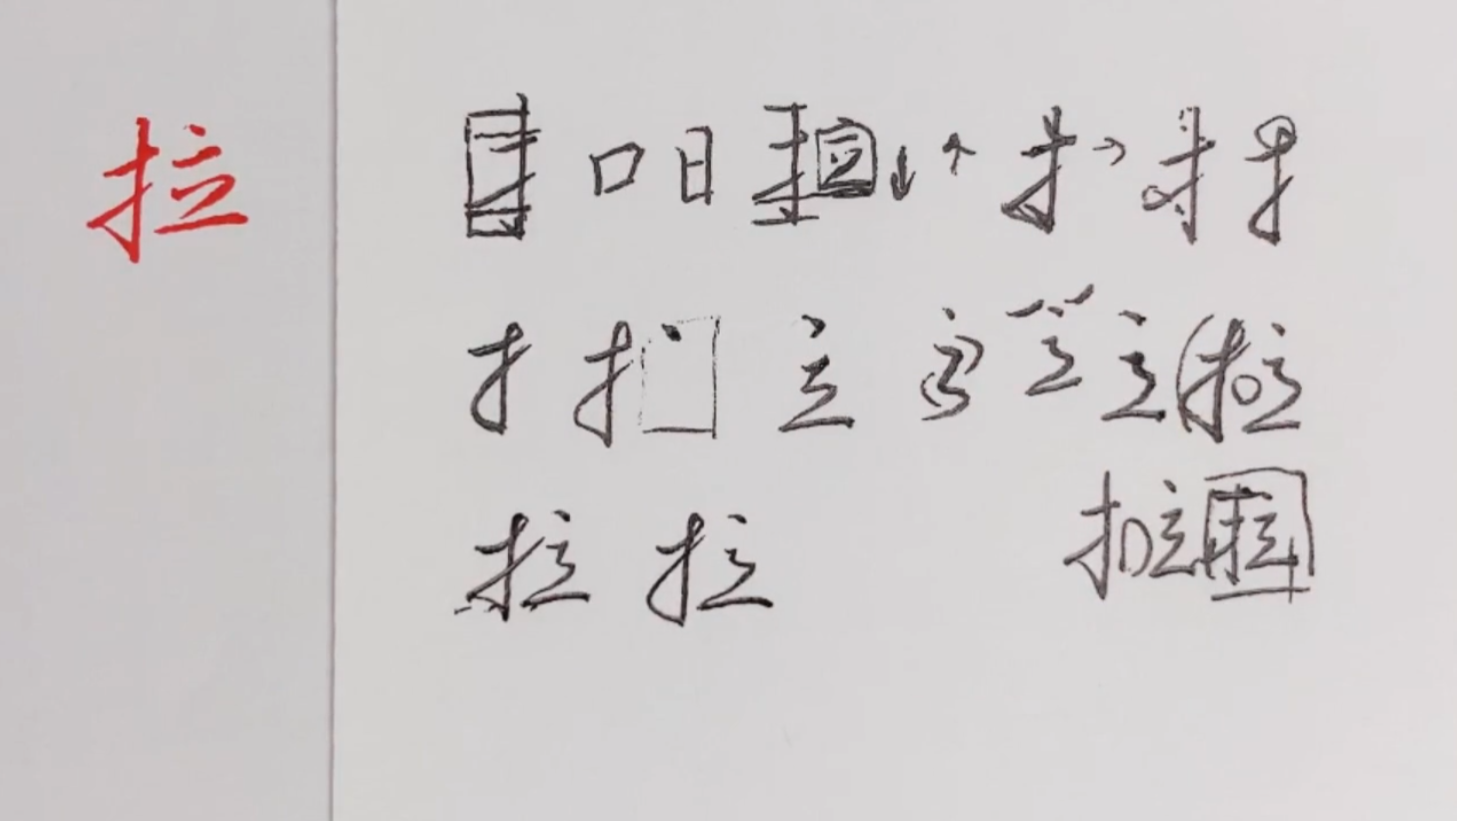 拉
扌 口 日 拉 ↓ ↑ 扌 → 扌 扌
扌 扌 立 立 立 立 拉
拉 拉 拉 拉